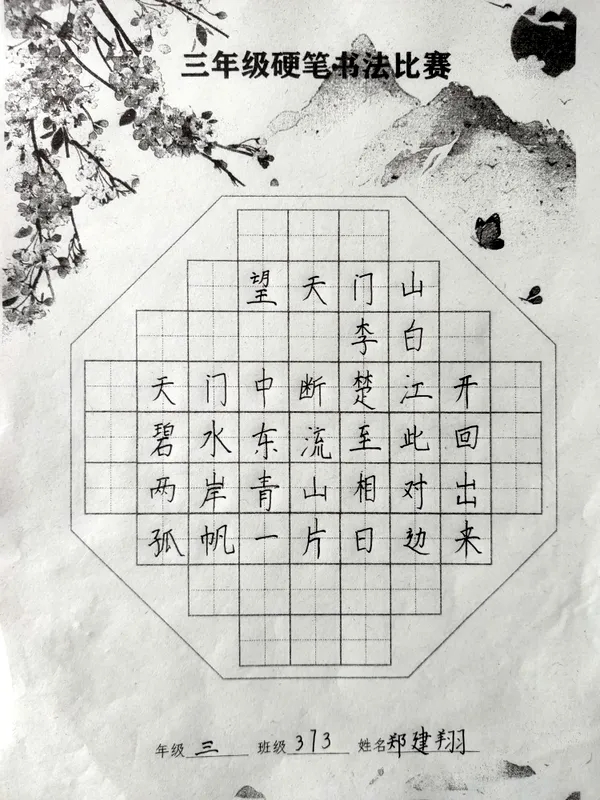 三年级硬笔书法比赛
望天门山
李白
天门中断楚江开
碧水东流至此回
两岸青山相对出
孤帆一片日边来
年级三 班级373 姓名郑建翔